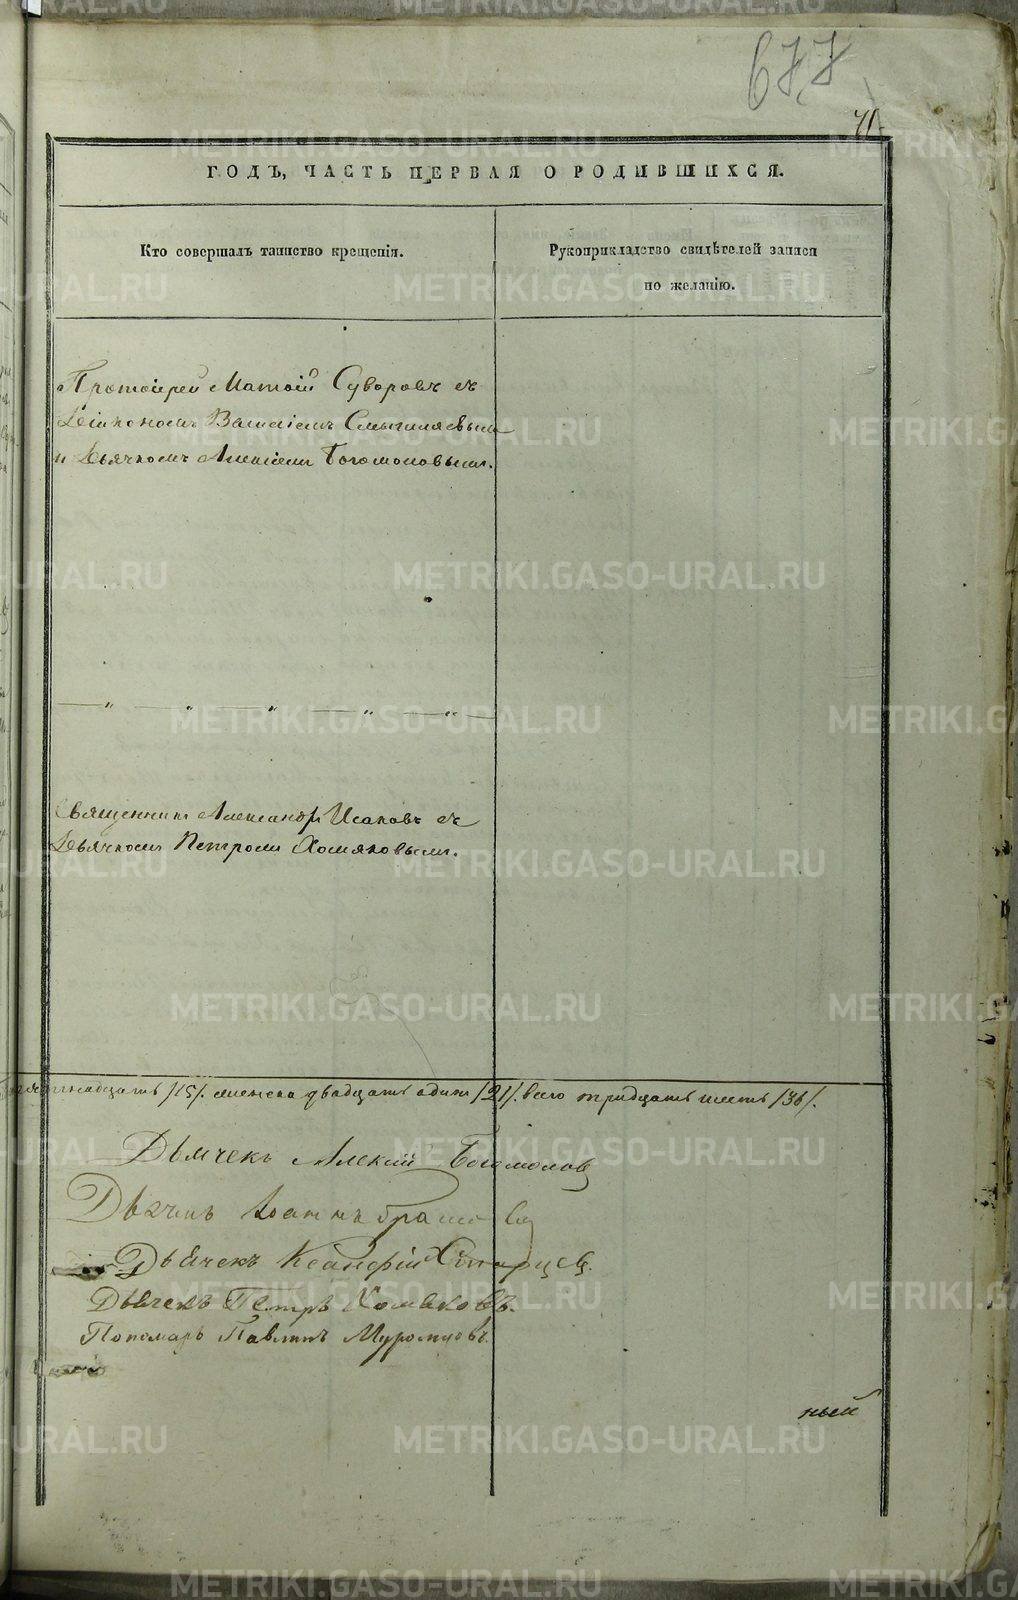 677
71
ГОДЪ, ЧАСТЬ ПЕРВАЯ О РОДИВШИХСЯ.
Кто совершалъ таинство крещенія.
Рукоприкладство свидѣтелей записи
по желанію.
Протоіерей Матѳій Суворовъ съ
Діакономъ Василіемъ Смышляевымъ
и Дьячкомъ Алексіемъ Богомоловымъ.
— „ — „ — „ — „ — „ —
Священникъ Александръ Исаковъ съ
Дьячкомъ Петромъ Хомяковымъ.
пятнадцать /15/. женска двадцать одинъ /21/. всего тридцать шесть /36/.
Дьячекъ Алексій Богомоловъ
Дьячекъ Іоаннъ
Дьячекъ
Дьячекъ Петръ Хомяковъ.
Пономарь Павлинъ Муромцовъ.
ный
METRIKI.GASO-URAL.RU